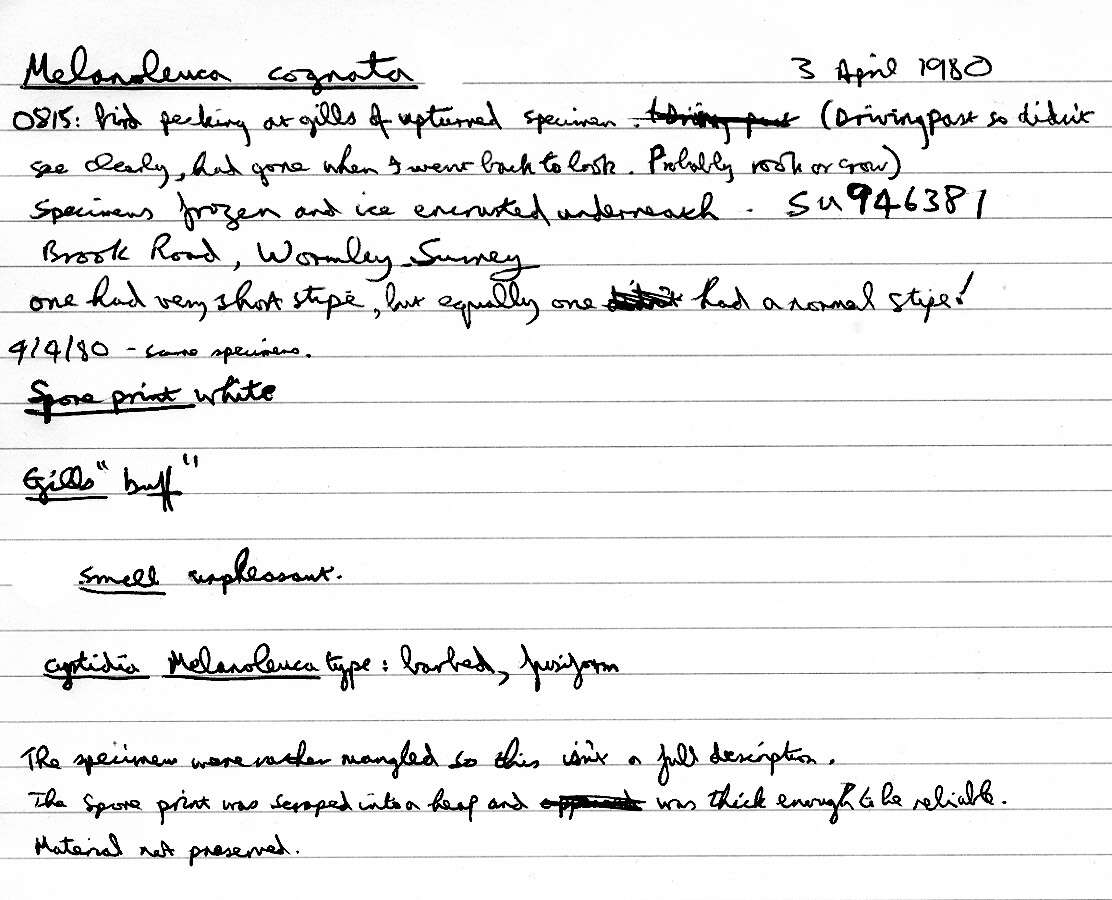 Melanoleuca cognata 3 April 1980
0815: bird pecking at gills of upturned specimen. (Driving past so didn't
see clearly, had gone when I went back to look. Probably rook or crow)
Specimens frozen and ice encrusted underneath. SU946381
Brook Road, Wormley, Surrey
one had very short stipe, but equally one had a normal stipe!
4/4/80 - same specimens.
Spore print white
Gills "buff"
Smell unpleasant.
cystidia Melanoleuca type: barbed, fusiform
The specimens were rather mangled so this isn't a full description.
The Spore print was scraped into a heap and was thick enough to be reliable.
Material not preserved.